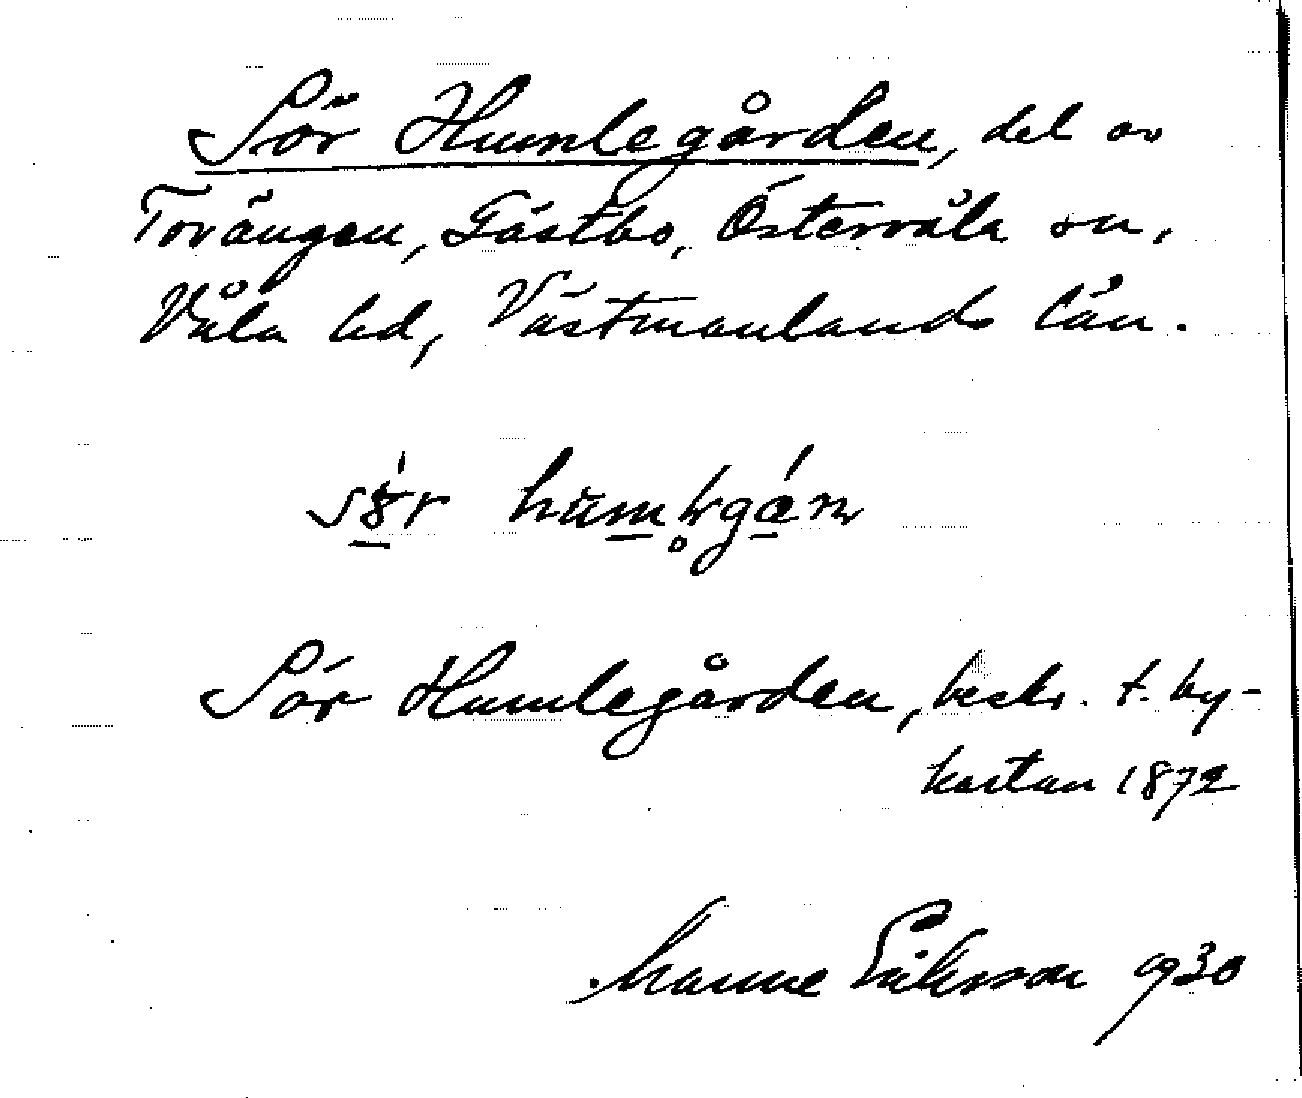 Sör Humlegården, del av
Torängen, Gästbo, Östervåla sn,
Våla hd, Västmanlands län.
Sör Humlegården, beskr. t. by-
kartan 1872
Manne Eriksson 1930